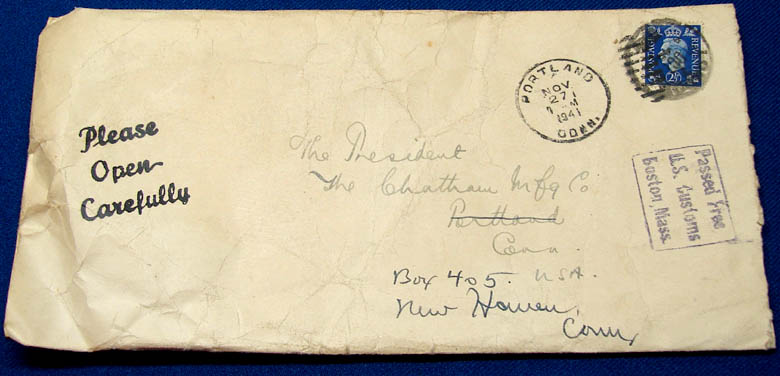 Please
Open
Carefully
PORTLAND
NOV
27
M
1941
CONN.
POSTAGE
REVENUE
2½
The President
The Chatham Mfg Co
Portland
Conn.
USA.
Box 405.
New Haven,
Conn,
Passed Free
U.S. Customs
Boston, Mass.